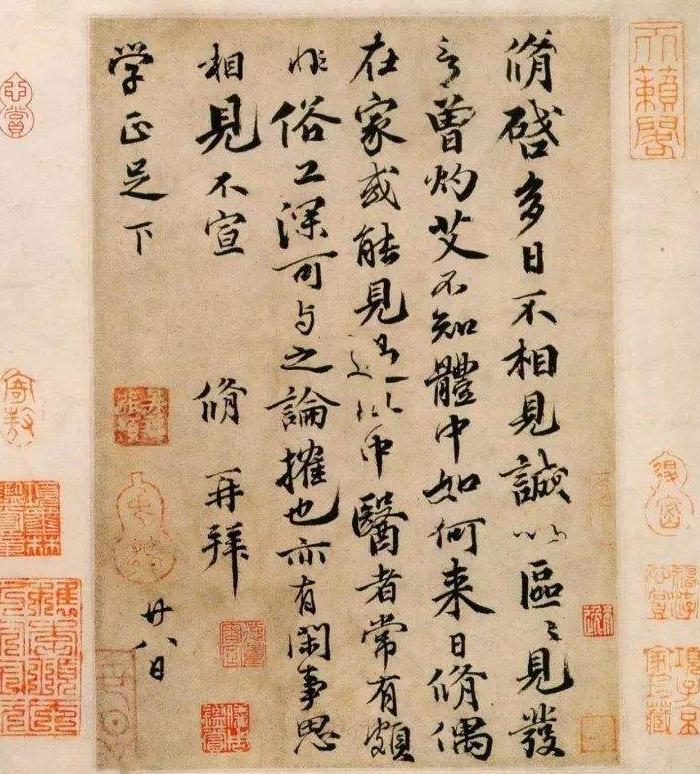 天籟閣
項子京家珍藏
脩啓多日不相見誠以區〻見發
言曾灼艾不知體中如何来日脩偶
在家或能見過此中醫者常有頗
非俗工深可与之論搉也亦有閑事思
相見不宣 脩再拜
廿八日
学正足下